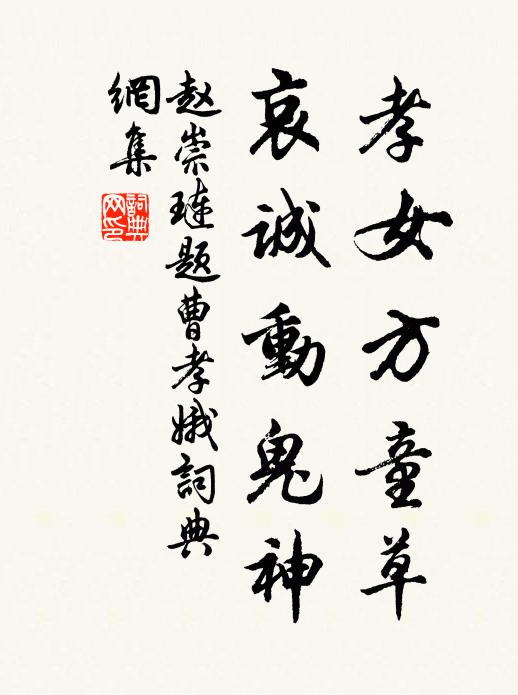 孝女方童草
哀誠動鬼神
赵崇璉題曹孝娥詞典
網集
詞典網印